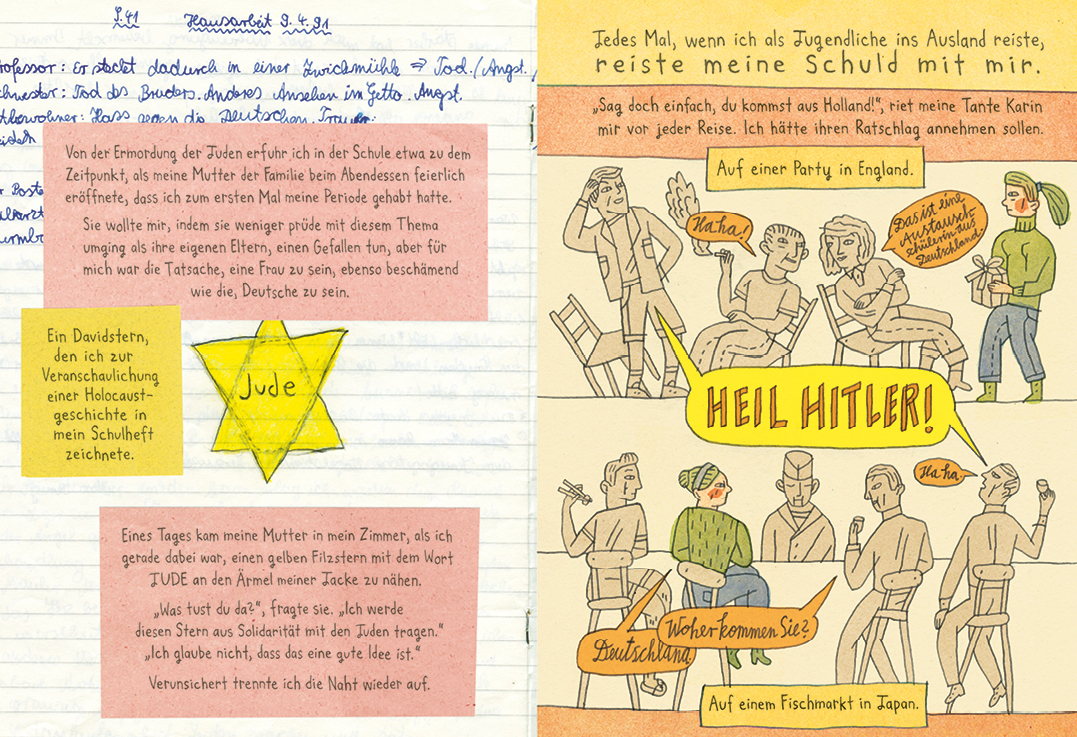 S.41 Hausarbeit 9.4.91
rofessor: Er steckt dadurch in einer Zwickmühle ⇒ Tod./Angst./
chwester: Tod des Bruders. Anderes Ansehen im Getto. Angst.
tbewohner: Hass gegen die Deutschen. Trauer.
Von der Ermordung der Juden erfuhr ich in der Schule etwa zu dem
Zeitpunkt, als meine Mutter der Familie beim Abendessen feierlich
eröffnete, dass ich zum ersten Mal meine Periode gehabt hatte.
Sie wollte mir, indem sie weniger prüde mit diesem Thema
umging als ihre eigenen Eltern, einen Gefallen tun, aber für
mich war die Tatsache, eine Frau zu sein, ebenso beschämend
wie die, Deutsche zu sein.
Ein Davidstern,
den ich zur
Veranschaulichung
einer Holocaust-
geschichte in
mein Schulheft
zeichnete.
Jude
Eines Tages kam meine Mutter in mein Zimmer, als ich
gerade dabei war, einen gelben Filzstern mit dem Wort
JUDE an den Ärmel meiner Jacke zu nähen.
„Was tust du da?“, fragte sie. „Ich werde
diesen Stern aus Solidarität mit den Juden tragen.“
„Ich glaube nicht, dass das eine gute Idee ist.“
Verunsichert trennte ich die Naht wieder auf.
Jedes Mal, wenn ich als Jugendliche ins Ausland reiste,
reiste meine Schuld mit mir.
„Sag doch einfach, du kommst aus Holland!“, riet meine Tante Karin
mir vor jeder Reise. Ich hätte ihren Ratschlag annehmen sollen.
Auf einer Party in England.
Haha!
Das ist eine
Austausch-
schülerin aus
Deutschland.
HEIL HITLER!
Ha ha.
Woher kommen Sie?
Deutschland.
Auf einem Fischmarkt in Japan.